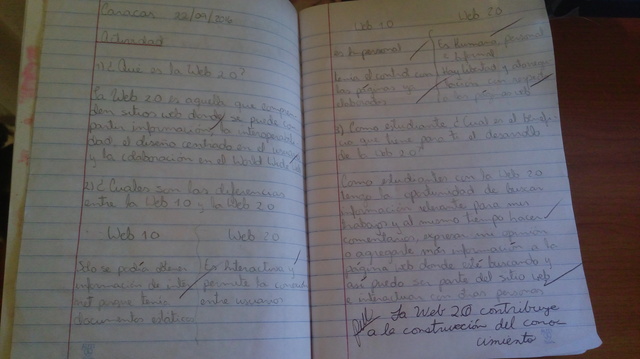 Caracas 22/09/2016
Actividad
1) ¿Que es la Web 2.0?
La Web 2.0 es aquella que compren
den sitios web donde se puede com
partir información, la interoperabili
dad, el diseño centrado en el usuario
y la colaboración en el World Wide
2) ¿Cuales son las diferencias
entre la Web 1.0 y la Web 2.0
Web 1.0 Web 2.0
Solo se podía obtener Es Interactiva y
información de inter permite la
net porque tenía entre usuarios
documentos estáticos
Web 1.0 Web 2.0
Es Es personal
Es personal
tenía el control con
las páginas ya
elaboradas
3) Como estudiante ¿Cual es el benefi
que tiene para ti el desarrollo
de la Web 2.0?
Como estudiante con la Web 2.0
tengo la oportunidad de buscar
información relevante para mis
trabajos y al mismo tiempo hacer
comentarios, expresar mi opinión
o agregarle más información a la
página web donde esté buscando y
así puedo ser parte del sitio web
e interactuar con otras personas
La Web 2.0 contribuye
a la construcción del conoc
imiento